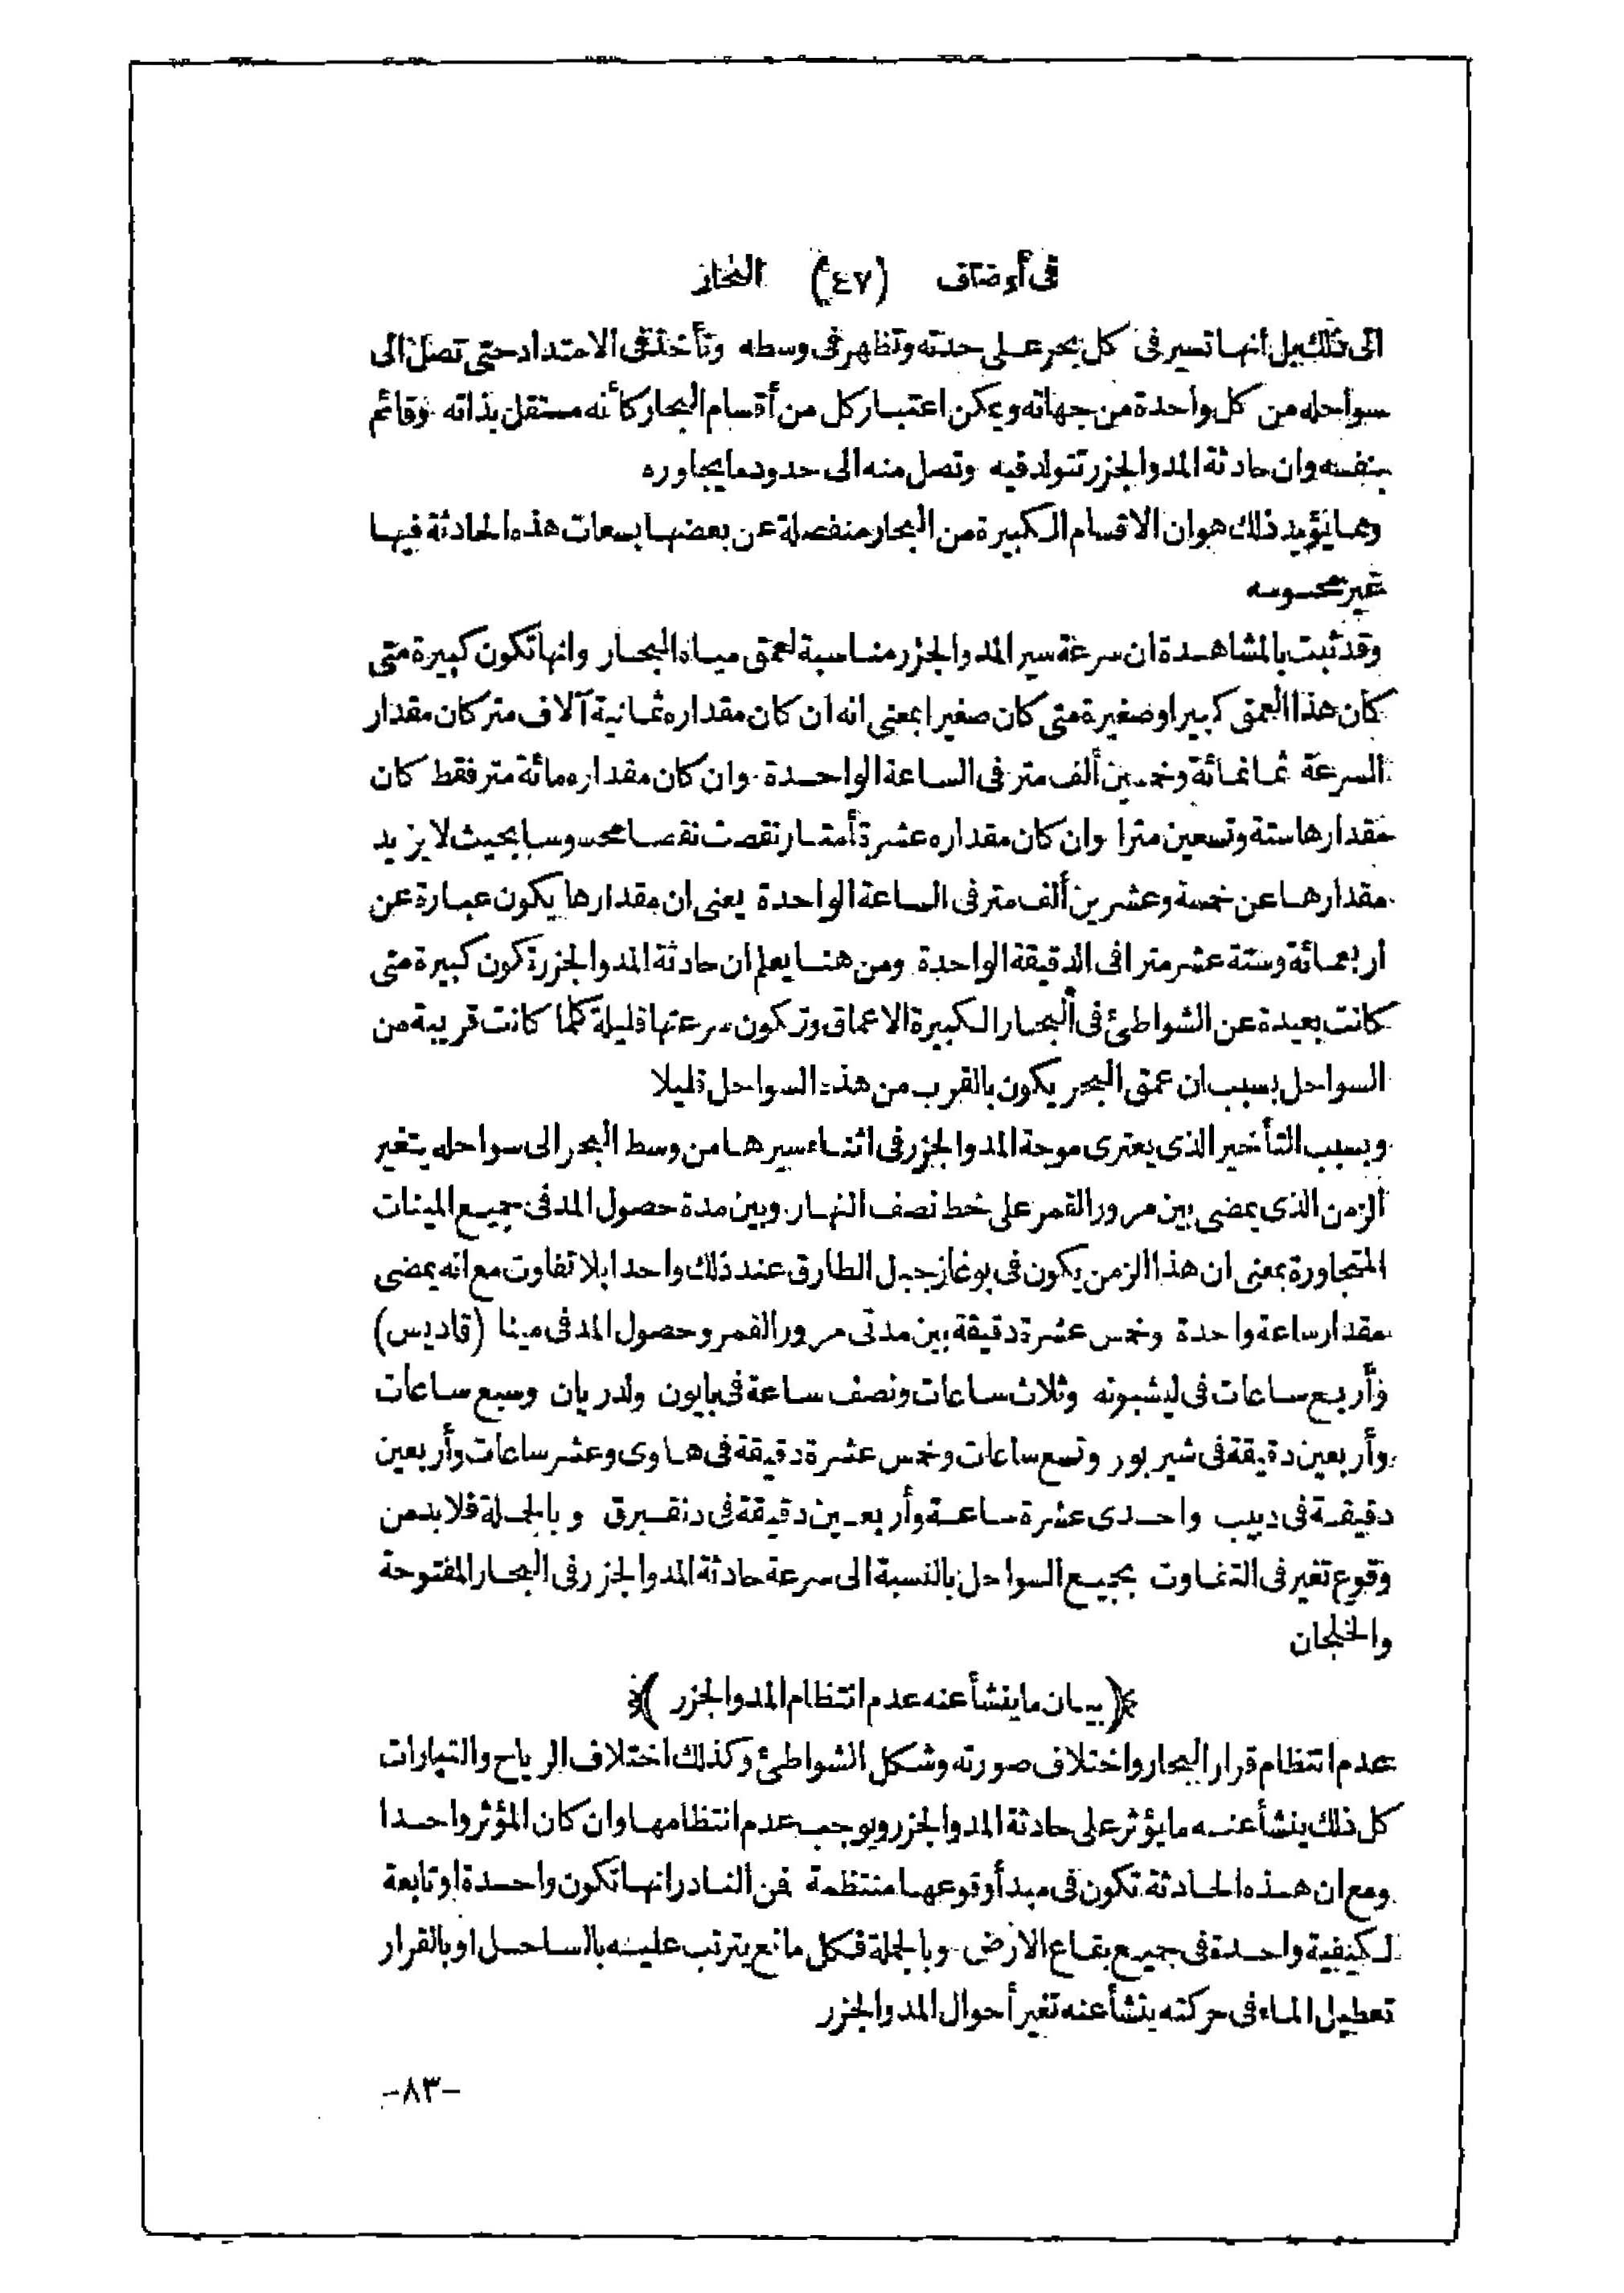 فى أوصاف (٤٧) البخار
الى ذلك بل أنها تسير فى كل بحر على حدته وتظهر فى وسطه وتأخذ فى الامتداد حتى تصل الى
سواحله من كل واحدة من جهاته ويمكن اعتبار كل من أقسام البحار كأنه مستقل بذاته وقائم
بنفسه وان حادثة المد والجزر تتولد فيه وتصل منه الى حدود ما يجاوره
ومما يؤيد ذلك هو ان الاقسام الكبيرة من البحار منفصلة عن بعضها بسعات هذه الحادثة فيها
غير محسوسه
وقد ثبت بالمشاهدة ان سرعة سير المد والجزر مناسبة لعمق مياه البحار وانها تكون كبيرة متى
كان هذا العمق كبيرا وصغيرة متى كان صغيرا بمعنى انه ان كان مقداره ثمانية آلاف متر كان مقدار
السرعة ثمانمائة وخمسين ألف متر فى الساعة الواحدة وان كان مقداره مائة متر فقط كان
مقدارها ستة وتسعين مترا وان كان مقداره عشرة أمتار نقصت نقصا محسوسا بحيث لا يزيد
مقدارها عن خمسة وعشرين ألف متر فى الساعة الواحدة يعنى ان مقدارها يكون عبارة عن
اربعمائة وستة عشر مترا فى الدقيقة الواحدة ومن هنا يعلم ان حادثة المد والجزر تكون كبيرة متى
كانت بعيدة عن الشواطئ فى البحار الكبيرة الاعماق وتكون سرعتها قليلة كلما كانت قريبة من
السواحل بسبب ان عمق البحر يكون بالقرب من هذه السواحل قليلا
وبسبب التأخير الذى يعترى موجة المد والجزر فى اثناء سيرها من وسط البحر الى سواحله يتغير
الزمن الذى يمضى بين مرور القمر على خط نصف النهار وبين مدة حصول المد فى جميع المينات
المتجاورة بمعنى ان هذا الزمن يكون فى بوغاز جبل الطارق عند ذلك واحدا بلا تفاوت مع انه يمضى
مقدار ساعة واحدة وخمس عشرة دقيقة بين مدتى مرور القمر وحصول المد فى مينا (قاديس)
وأربع ساعات فى ليشبونه وثلاث ساعات ونصف ساعة فى بايون ولدريان وسبع ساعات
وأربعين دقيقة فى شيربور وتسع ساعات وخمس عشرة دقيقة فى هاوى وعشر ساعات وأربعين
دقيقة فى دييب واحدى عشرة ساعة وأربعين دقيقة فى دنقيرق وبالجملة فلا بد من
وقوع تغير فى التفاوت بجميع السواحل بالنسبة الى سرعة حادثة المد والجزر فى البحار المفتوحة
والخلجان
﴿بيان ما ينشأ عنه عدم انتظام المد والجزر﴾
عدم انتظام قرار البحار واختلاف صورته وشكل الشواطئ وكذلك اختلاف الرياح والتيارات
كل ذلك ينشأ عنه ما يؤثر على حادثة المد والجزر ويوجب عدم انتظامها وان كان المؤثر واحدا
ومع ان هذه الحادثة تكون فى مبدأ وقوعها منتظمة فمن النادر انها تكون واحدة او تابعة
لكيفية واحدة فى جميع بقاع الارض وبالجملة فكل مانع يترتب عليه بالساحل او بالقرار
تعطيل الماء فى حركته ينشأ عنه تغير أحوال المد والجزر
-٨٣-